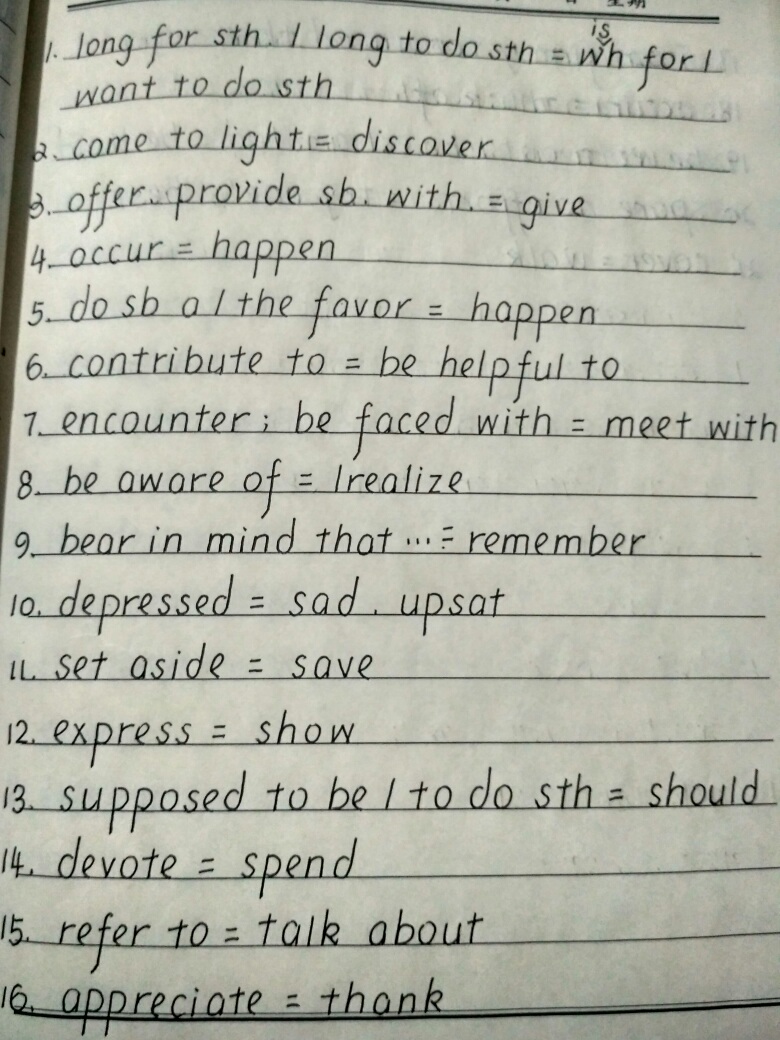 1. long for sth. / long to do sth = wish for /
want to do sth
2. come to light = discover
3. offer. provide sb. with. = give
4. occur = happen
5. do sb a / the favor = happen
6. contribute to = be helpful to
7. encounter; be faced with = meet with
8. be aware of = /realize
9. bear in mind that ... = remember
10. depressed = sad. upsat
11. set aside = save
12. express = show
13. supposed to be / to do sth = should
14. devote = spend
15. refer to = talk about
16. appreciate = thank